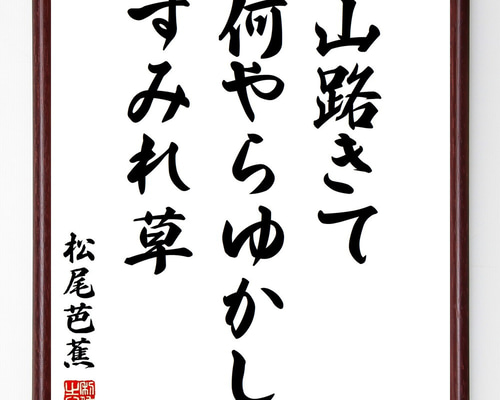 山路きて
何やらゆかし
すみれ草
松尾芭蕉